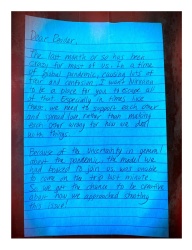 Dear Reader,
The last month or so has been
crazy for most of us. In a time
of global pandemic, causing lots of
fear and confusion, I want
to be a place for you to escape all
of that. Especially in times like
these, we need to support each other
and spread love rather than making
each other worry for how we deal
with things.
Because of the uncertainty in general
about the pandemic, the model we
had booked to join us was unable
to come on the trip last minute.
So we got the chance to be creative
when how we approached shooting
this issue!